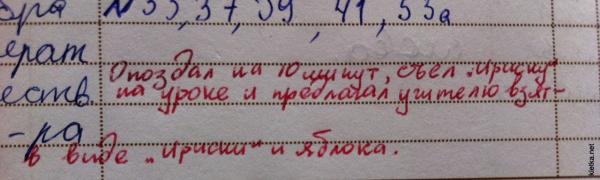 бра №35,37,39,41,53а
ерат
Опоздал на 10 минут, съел „Ириску"
еств. на уроке и предлагал учителю взят-
-ра
в виде „Ириски" и яблока.
kletka.net